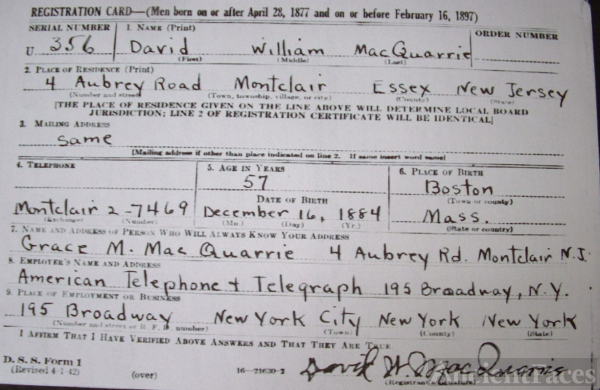 REGISTRATION CARD—(Men born on or after April 28, 1877 and on or before February 16, 1897)
SERIAL NUMBER 1. NAME (Print) ORDER NUMBER
U 356 David William MacQuarrie
(First) (Middle) (Last)
2. PLACE OF RESIDENCE (Print)
4 Aubrey Road Montclair Essex New Jersey
(Number and street) (Town, township, village, or city) (County) (State)
[THE PLACE OF RESIDENCE GIVEN ON THE LINE ABOVE WILL DETERMINE LOCAL BOARD
JURISDICTION; LINE 2 OF REGISTRATION CERTIFICATE WILL BE IDENTICAL]
3. MAILING ADDRESS
same
[Mailing address if other than place indicated on line 2. If same insert word same]
4. TELEPHONE 5. AGE IN YEARS 6. PLACE OF BIRTH
57 Boston
DATE OF BIRTH (Town or county)
Montclair 2-7469 December 16, 1884 Mass.
(Exchange) (Number) (Mo.) (Day) (Yr.) (State or country)
7. NAME AND ADDRESS OF PERSON WHO WILL ALWAYS KNOW YOUR ADDRESS
Grace M. Mac Quarrie 4 Aubrey Rd. Montclair N.J.
8. EMPLOYER'S NAME AND ADDRESS
American Telephone + Telegraph 195 Broadway, N.Y.
9. PLACE OF EMPLOYMENT OR BUSINESS
195 Broadway New York City New York New York
(Number and street or R. F. D. number) (Town) (County) (State)
I AFFIRM THAT I HAVE VERIFIED ABOVE ANSWERS AND THAT THEY ARE TRUE.
D. S. S. Form 1
(Revised 4-1-42) (over) 16—21630-2 David W. MacQuarrie
(Registrant's signature)
Ancientraces